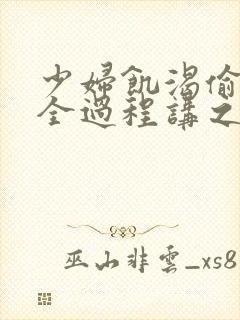 少婦飢渴偷
全過程講之
巫山非雲_xs8